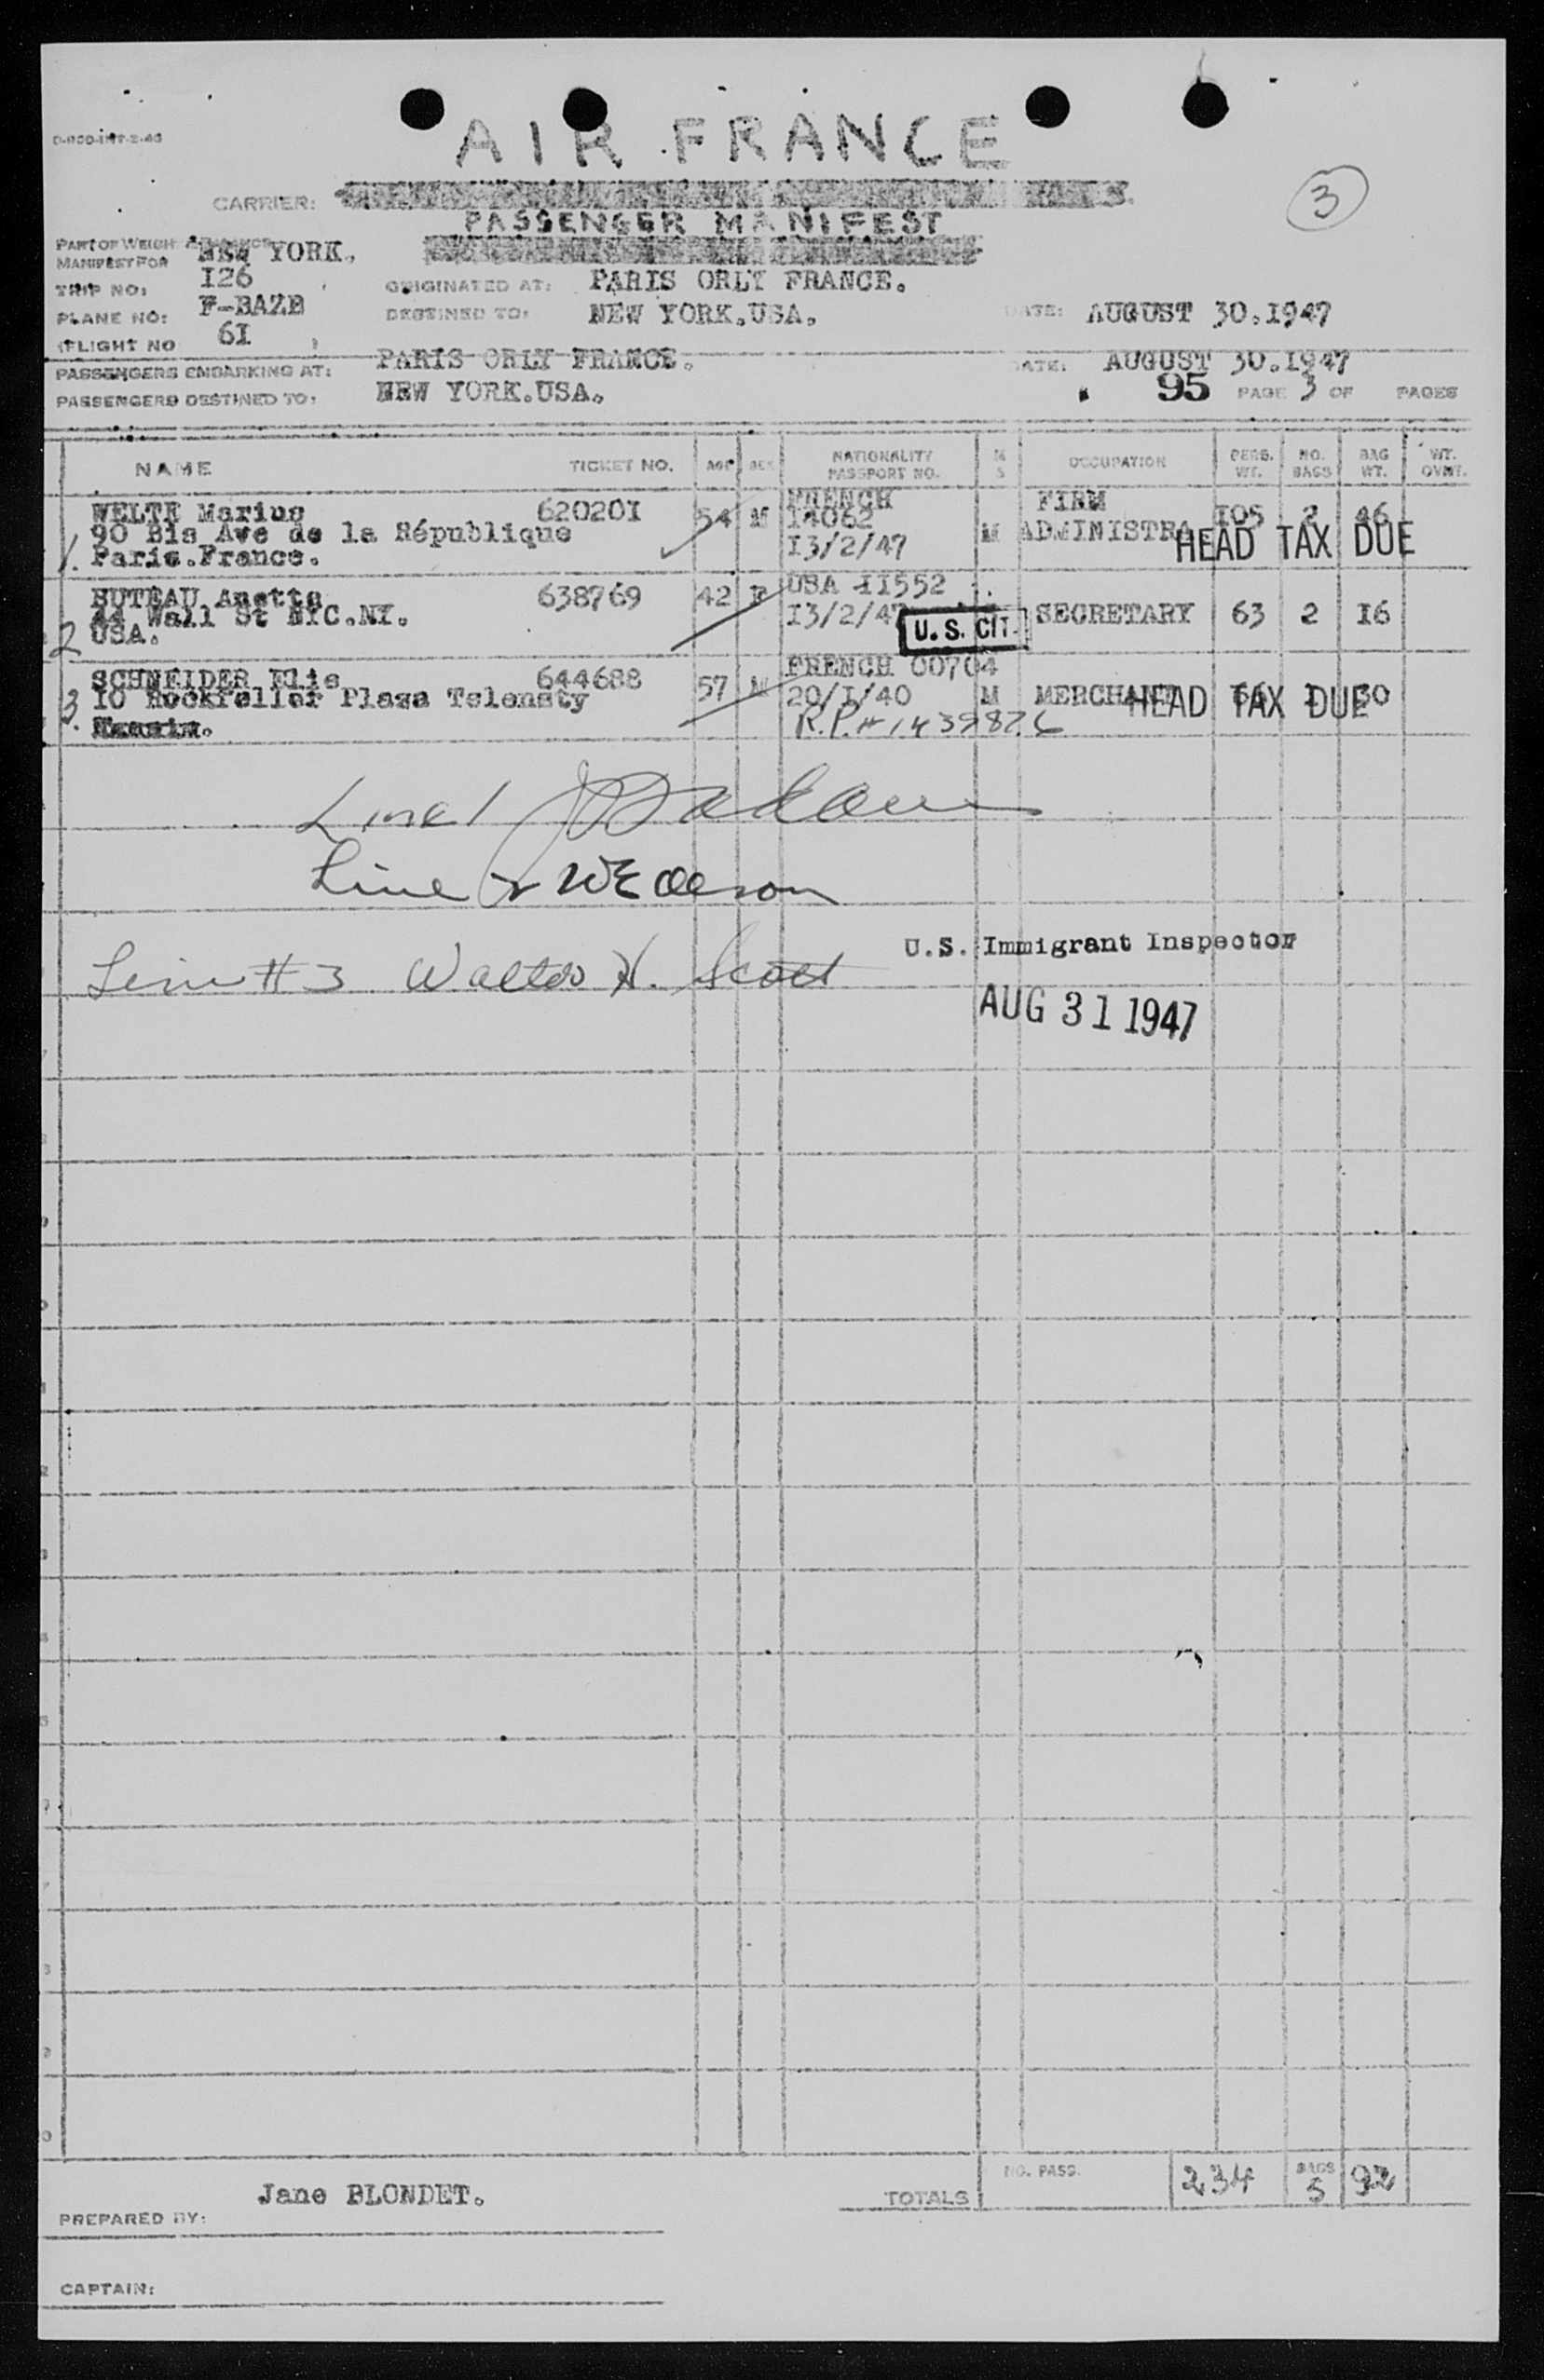 AIR FRANCE
3
CARRIER:
PASSENGER MANIFEST
PART OF WEIGHT
MANIFEST FOR NEW YORK.
TRIP NO: I26 ORIGINATED AT: PARIS ORLY FRANCE.
PLANE NO: F-BAZB DESTINED TO: NEW YORK.USA. DATE: AUGUST 30.1947
FLIGHT NO 6I
PASSENGERS EMBARKING AT: PARIS ORLY FRANCE. DATE: AUGUST 30.1947
PASSENGERS DESTINED TO: NEW YORK.USA. 95 PAGE 3 OF PAGES
NAME TICKET NO. AGE SEX NATIONALITY PASSPORT NO. M S OCCUPATION PERS. WT. NO. BAGS BAG WT. WT. OVWT.
WELTE Marius 62020I 54 M FRENCH FIRM I05 2 46
90 Bis Ave de la République 14062 M ADMINISTRA
1. Paris.France. I3/2/47 HEAD TAX DUE
BUTEAU Anetta 638769 42 F USA II552
44 Wall St NYC.NY. I3/2/47 U.S. CIT. SECRETARY 63 2 I6
2 USA.
SCHNEIDER Elie 644688 57 M FRENCH 00704
3. IO Rockfeller Plaza Telensty 20/I/40 M MERCHANT 66 1 30 HEAD TAX DUE
R.P.# 1439876
Line 1
Line 2
Line #3 Walter H. Scott
U.S. Immigrant Inspector
AUG 31 1947
TOTALS NO. PASS. 234 BAGS 5 92
Jane BLONDET.
PREPARED BY:
CAPTAIN: